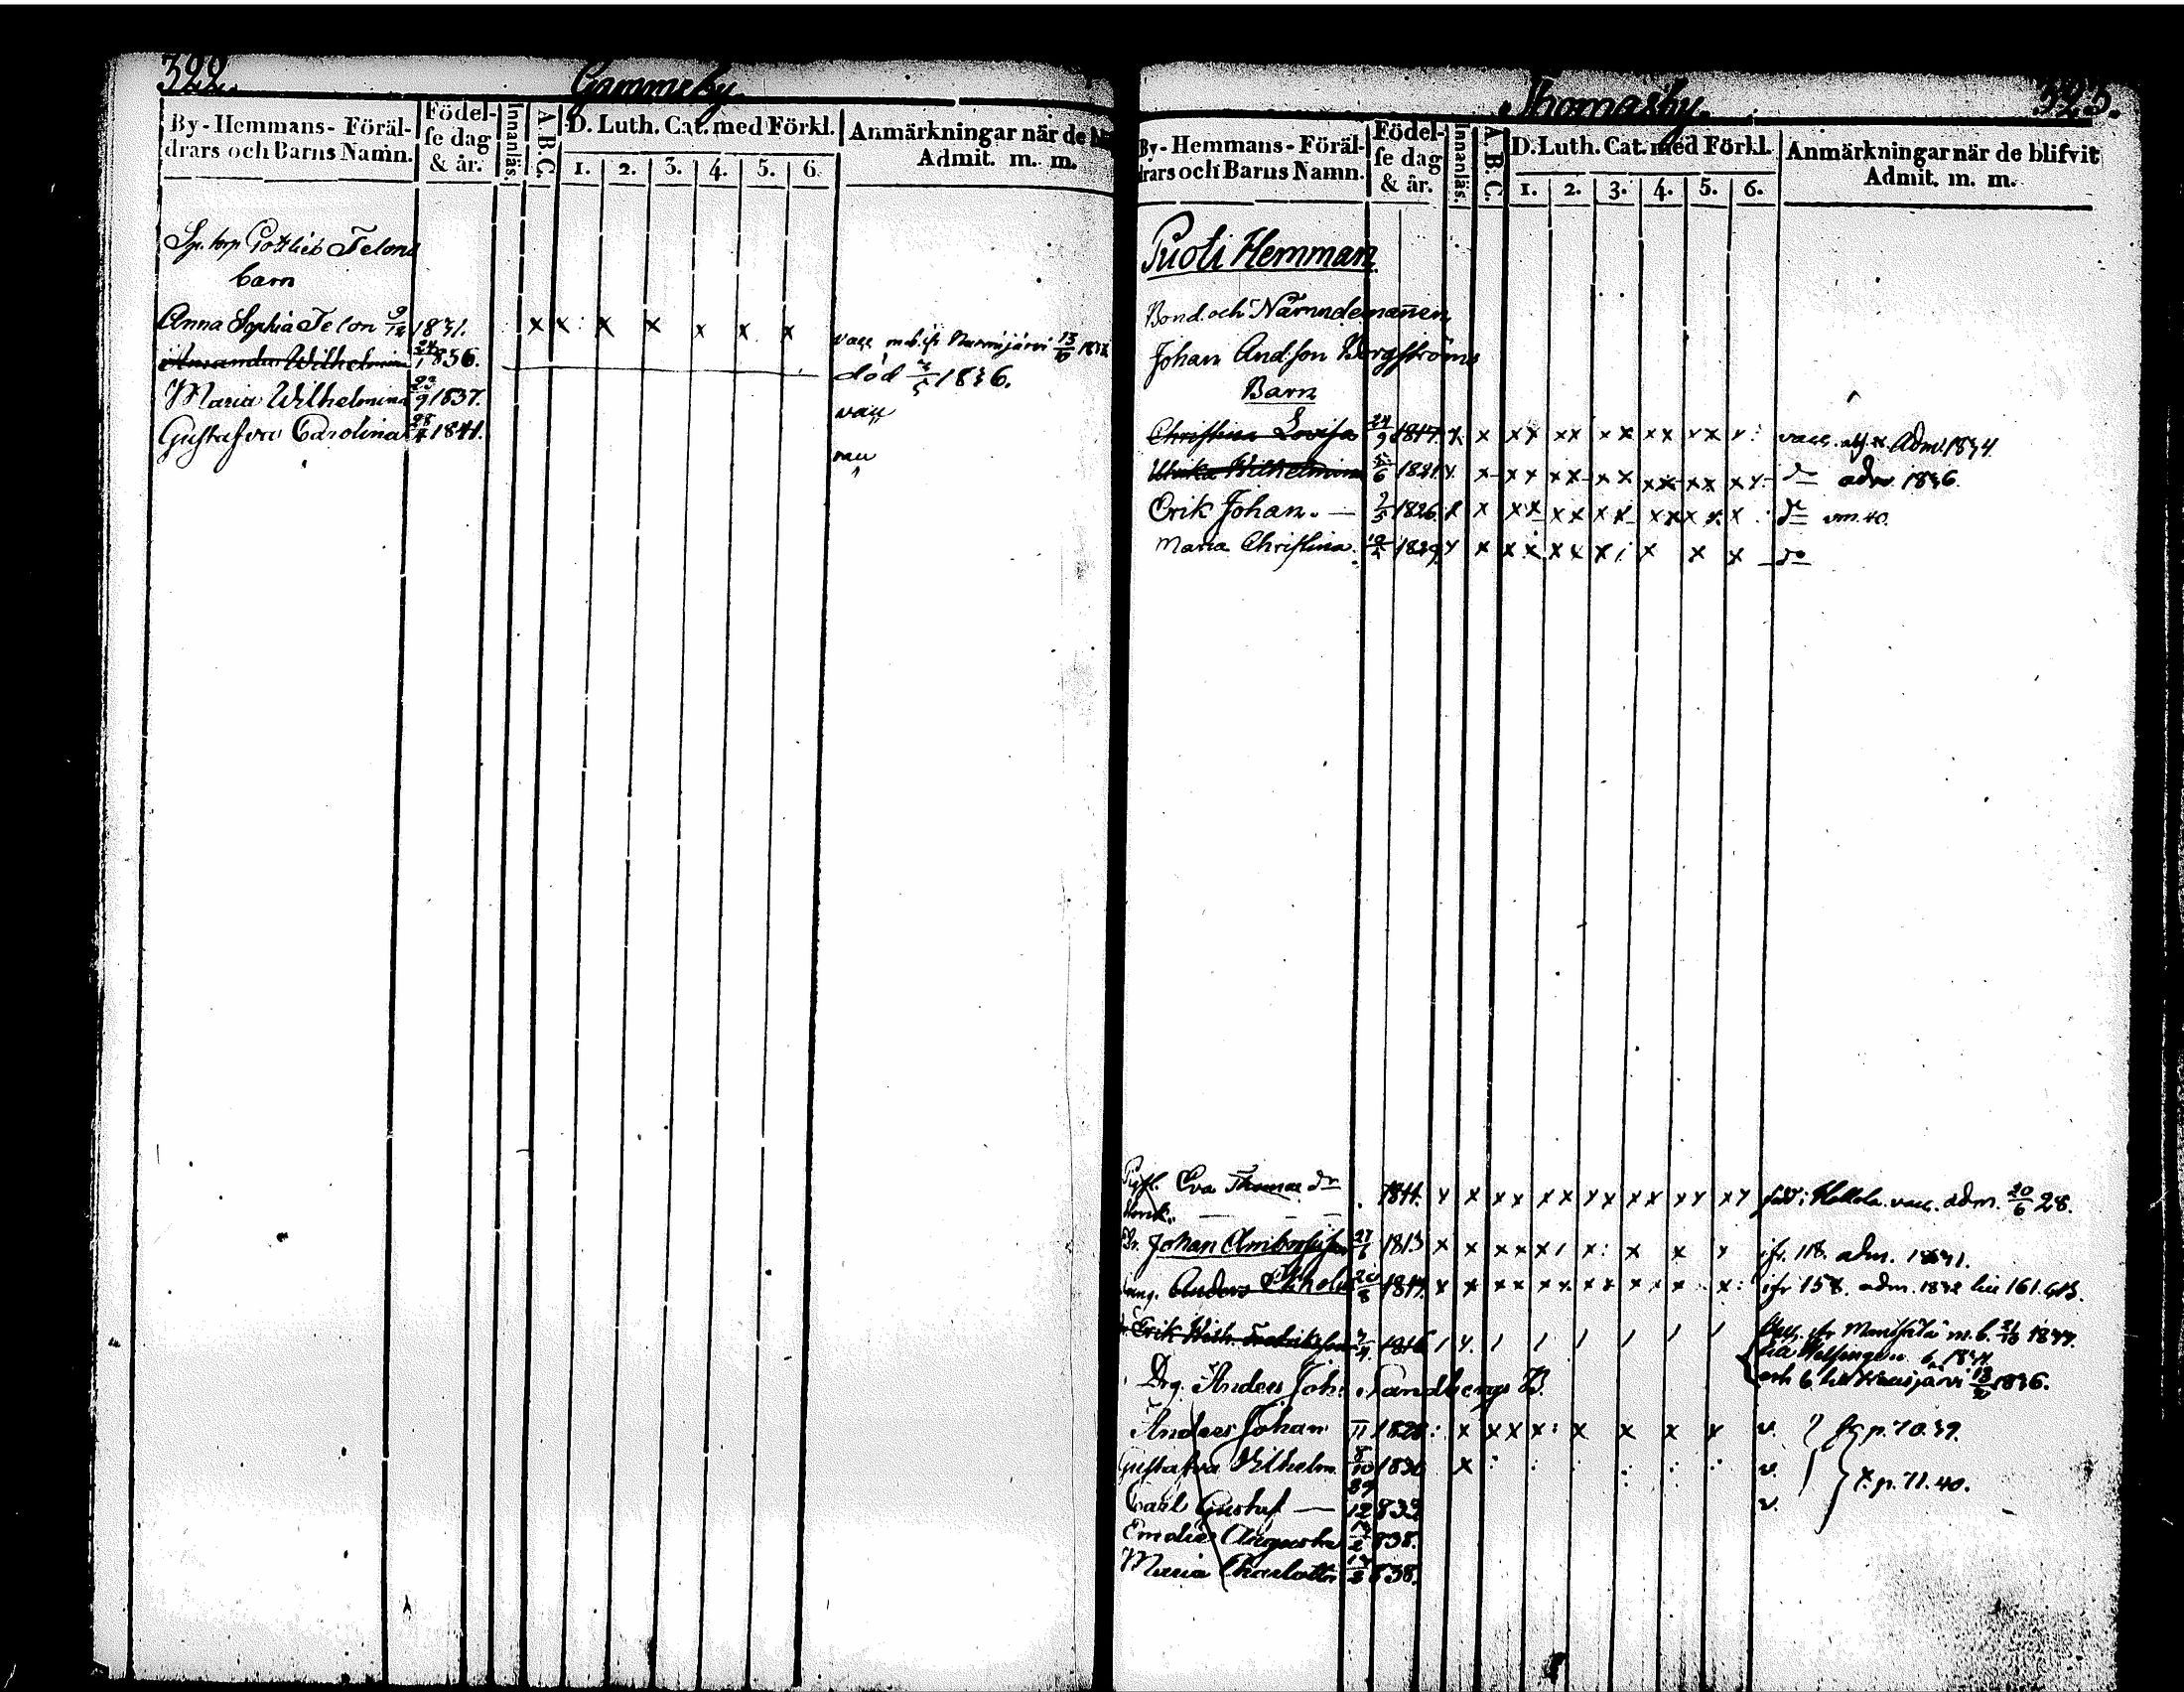 322.
Gammelby.
By-Hemmans-Föräl-
drars och Barns Namn.
Födel-
se dag
& år.
Innanläs.
A. B. C.
D. Luth. Cat. med Förkl.
1. 2. 3. 4. 5. 6.
Anmärkningar när de bli
Admit. m. m.
Gottlieb Telons
barn
Anna Sophia Telon 9/12 1831. x x : x x x x x vacc m.b. ifr Nurmijärvi 13/6
Amanda Wilhelmina 24/1 1836. död 1836.
Maria Wilhelmina 23/9 1837. vacc
Gustafva Carolina 28/4 1841. vac
323.
Thomasby.
By-Hemmans-Föräl-
drars och Barns Namn.
Födel-
se dag
& år.
Innanläs.
A. B. C.
D. Luth. Cat. med Förkl.
1. 2. 3. 4. 5. 6.
Anmärkningar när de blifvit
Admit. m. m.
Puoti Hemman
Bond. och Nämndemannen
Johan And.son Bergströms
Barn
Christina Lovisa 24/9 1817. x x xx xx xx xx xx x : vacc. Adm. 1834
Ulrika Wilhelmina 5/6 1821 x x xx xx xx xx xx xx do adm. 1836.
Erik Johan. — 1826. x x xx xx xx xx x x x : do 40.
Maria Christina. 1829. x x x x x x x x x x do
Eva Thomas dr 1811. x x xx xx xx xx xx xx född i Hollola. vacc. adm. 20/6 28.
Dr. Johan 27/6 1813 x x x x x x : x x x ifr. 118. adm. 1831.
Anders Ekholm 20/8 x x xx xx xx x x x x : ifr 158. adm. 1832 161.
Erik Wilh. Fredriksson 1816
1836.
Drg. Anders Joh. Sandbergs B.
Anders Johan 1828 : x x x x : x x x x v. p. 70. 39.
Gustafva Wilhelm. 8/10 1830 x : : : : : : v. p. 71. 40.
Carl Gustaf — v.
Emilia Augusta 838.
Maria Charlotta 838.